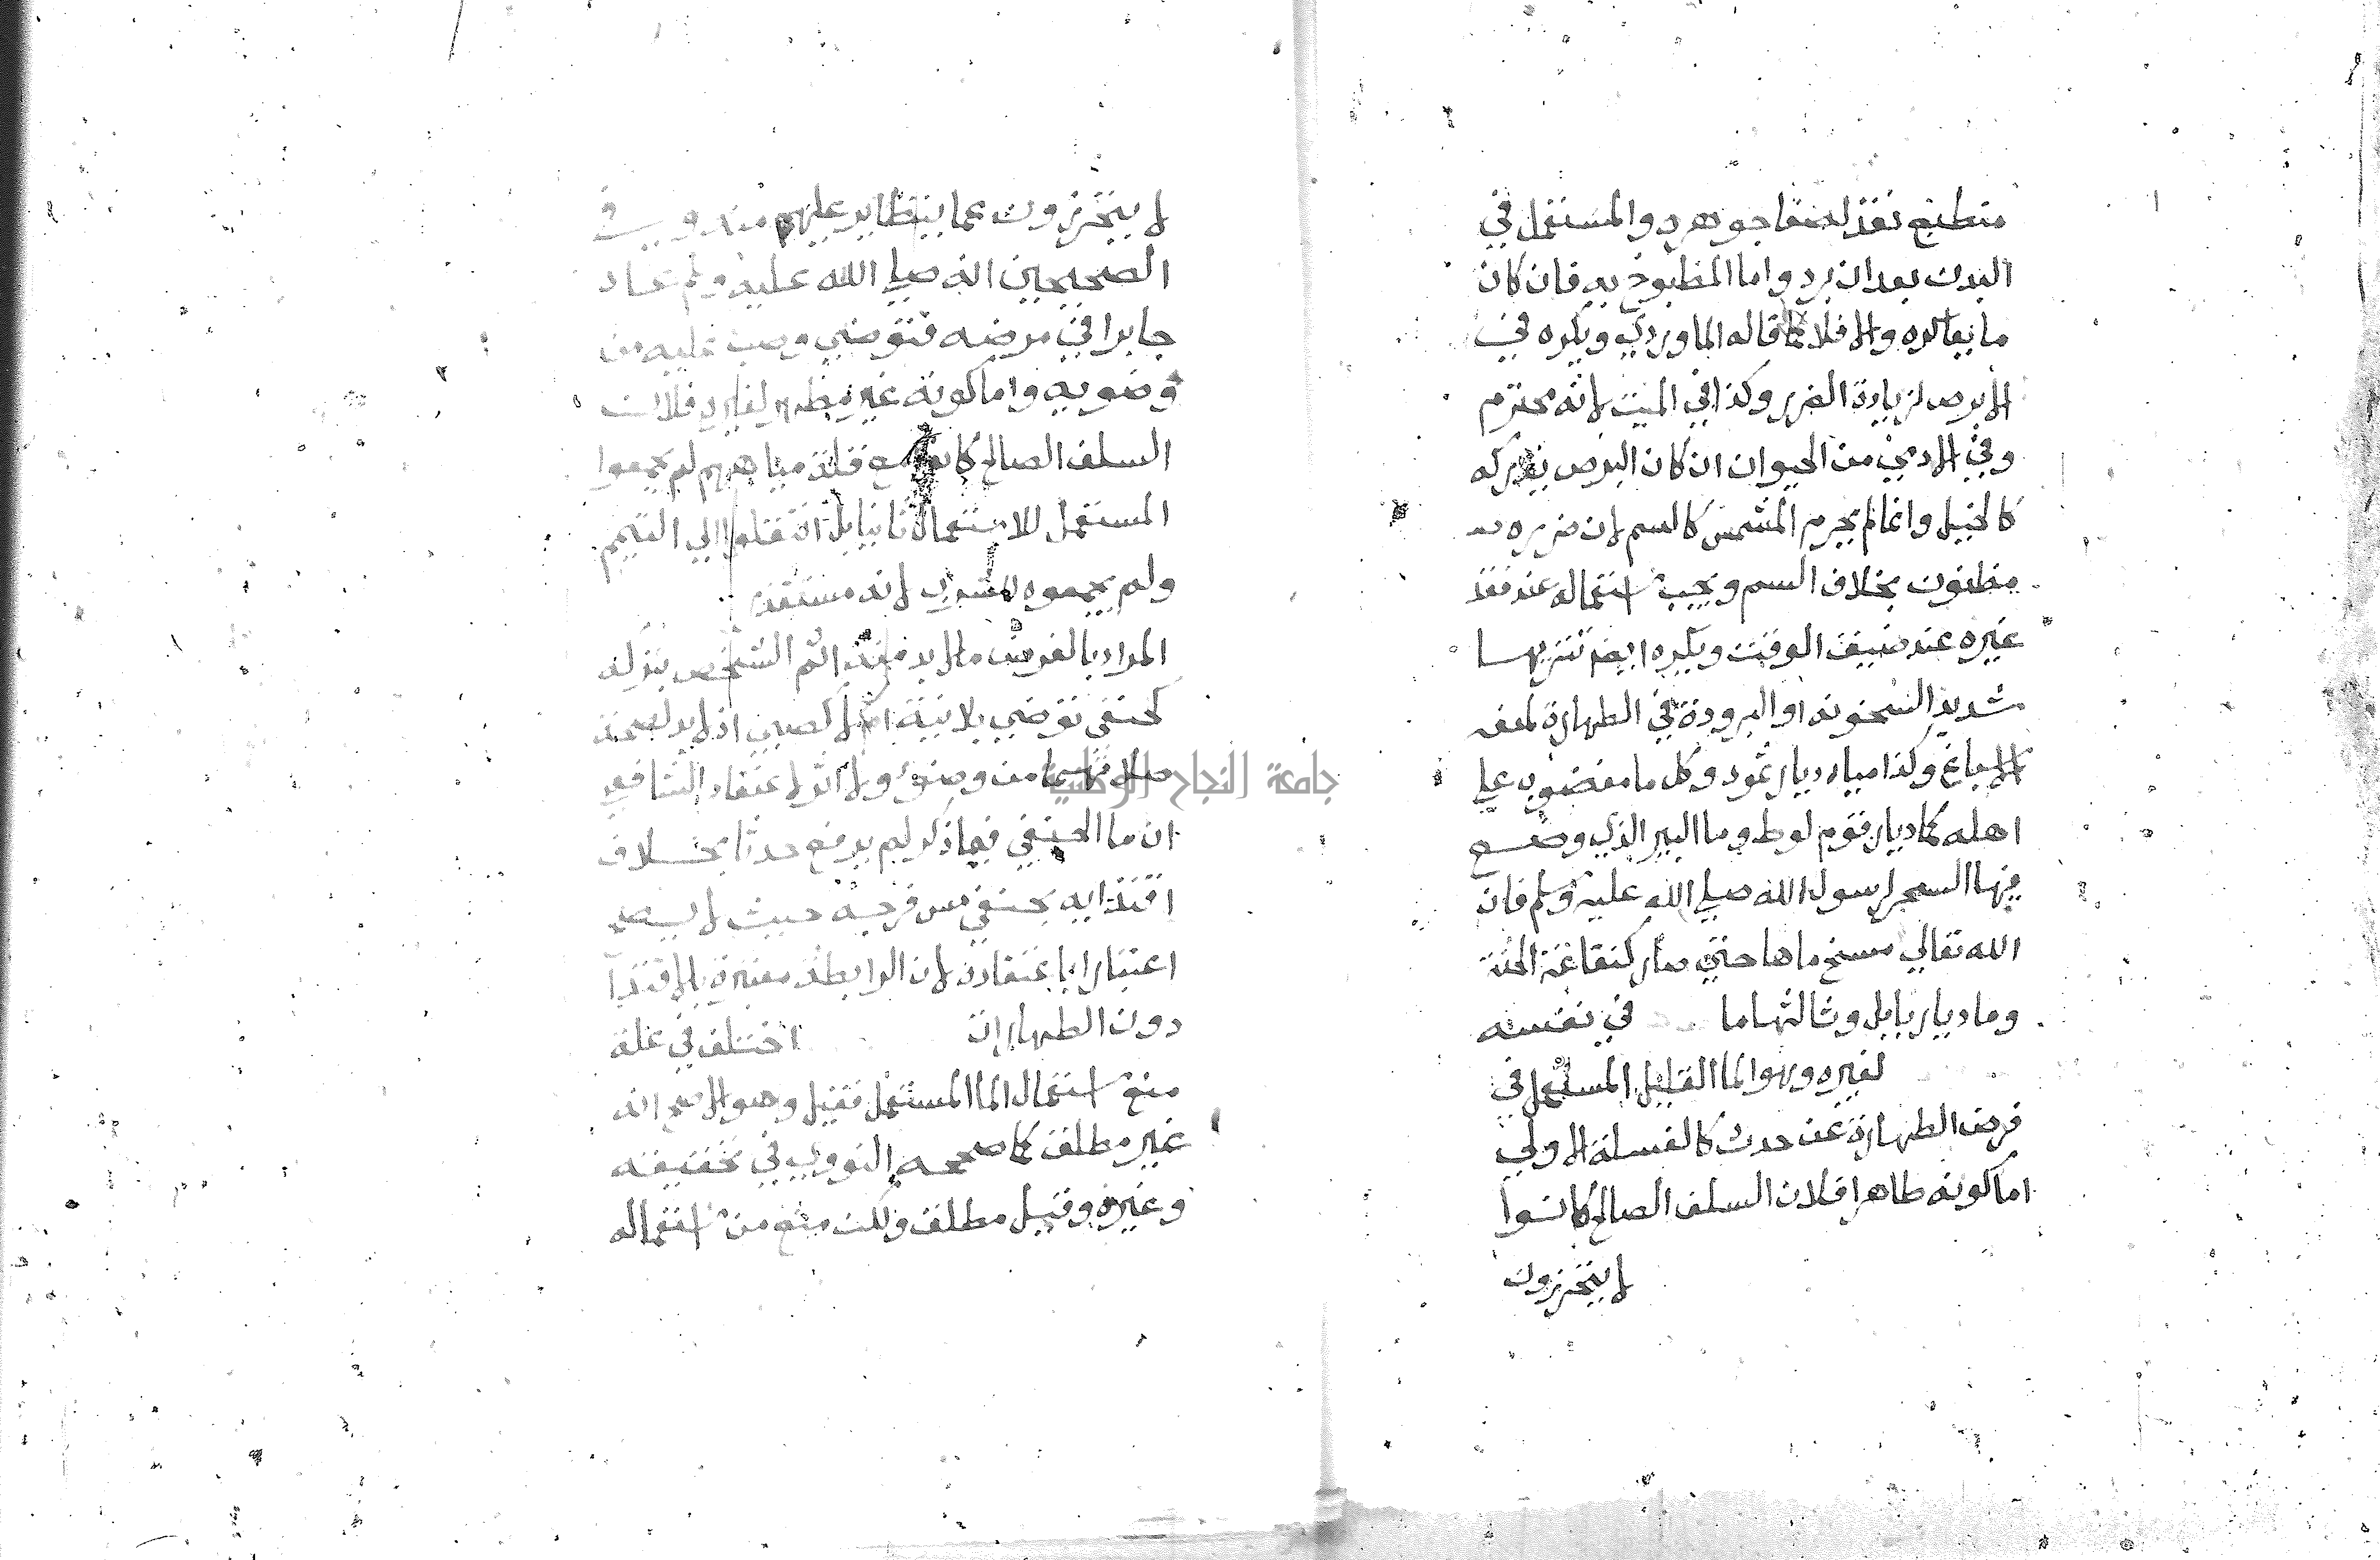 منطبع نقد لصفا جوهره والمستعمل في
البدن بعد ان برد واما المطبوخ به فان كان
ما يعا كره والا فلا كما قاله الماوردي ويكره في
الابرص لزيادة الضرر وكذا في الميت لانه محترم
وفي الادمي من الحيوان ان كان البرص يدركه
كالخيل وانما لم يحرم المشمس كالسم لان ضرره
مظنون بخلاف السم ويجب استعماله عند فقد
غيره عند ضيق الوقت ويكره ايضا تنزيها
شديد السخونة او البرودة في الطهارة لمنعه
الاسباغ وكذا مياه ديار ثمود وكل ما مغضوب علي
اهله كما ديار قوم لوط وما البير الذي وضع
فيها السحر لرسول الله صلي الله عليه وسلم فان
الله تعالي مسخ ماها حتي صار كنقاعة الحنة
وما ديار بابل وثالثها ما في نفسه
لغيره وهو الما القليل المستعمل في
فرض الطهارة عن حدث كالغسلة الاولي
اما كونه طاهرا فلان السلف الصالح كانوا
لا يتحرزون
لا يتحرزون عما يتطاير عليهم منه وفي
الصحيحين انه صلي الله عليه وسلم عاد
جابرا في مرضه فتوضي وصب عليه من
وضويه واما كونه غير مطهر لغيره فلان
السلف الصالح كانوا مع قلة مياههم لم يجمعوا
المستعمل للاستعمال ثانيا بل انتقلوا الي التيمم
ولم يجمعوه للشرب لانه مستقذر
المراد بالفرض ما لا بد منه اثم الشخص بتركه
كحنفي توضي بلا نية ام لا كصبي اذ لا بد لصحة
صلاتهما من وضوء ولا اثر لاعتقاد الشافعي
ان ما الحنفي فيما ذكر لم يرفع حدثا بخلاف
اقتدايه بحنفي مس فرجه حيث لا يصح
اعتبارا باعتقاده لان الرابطة معتبرة بالاقتدا
دون الطهارات اختلف في علة
منع استعمال الما المستعمل فقيل وهو الاصح انه
غير مطلق كما صححه النووي في تحقيقه
وغيره وقيل مطلق ولكن منع من استعماله
جامعة النجاح الوطنية